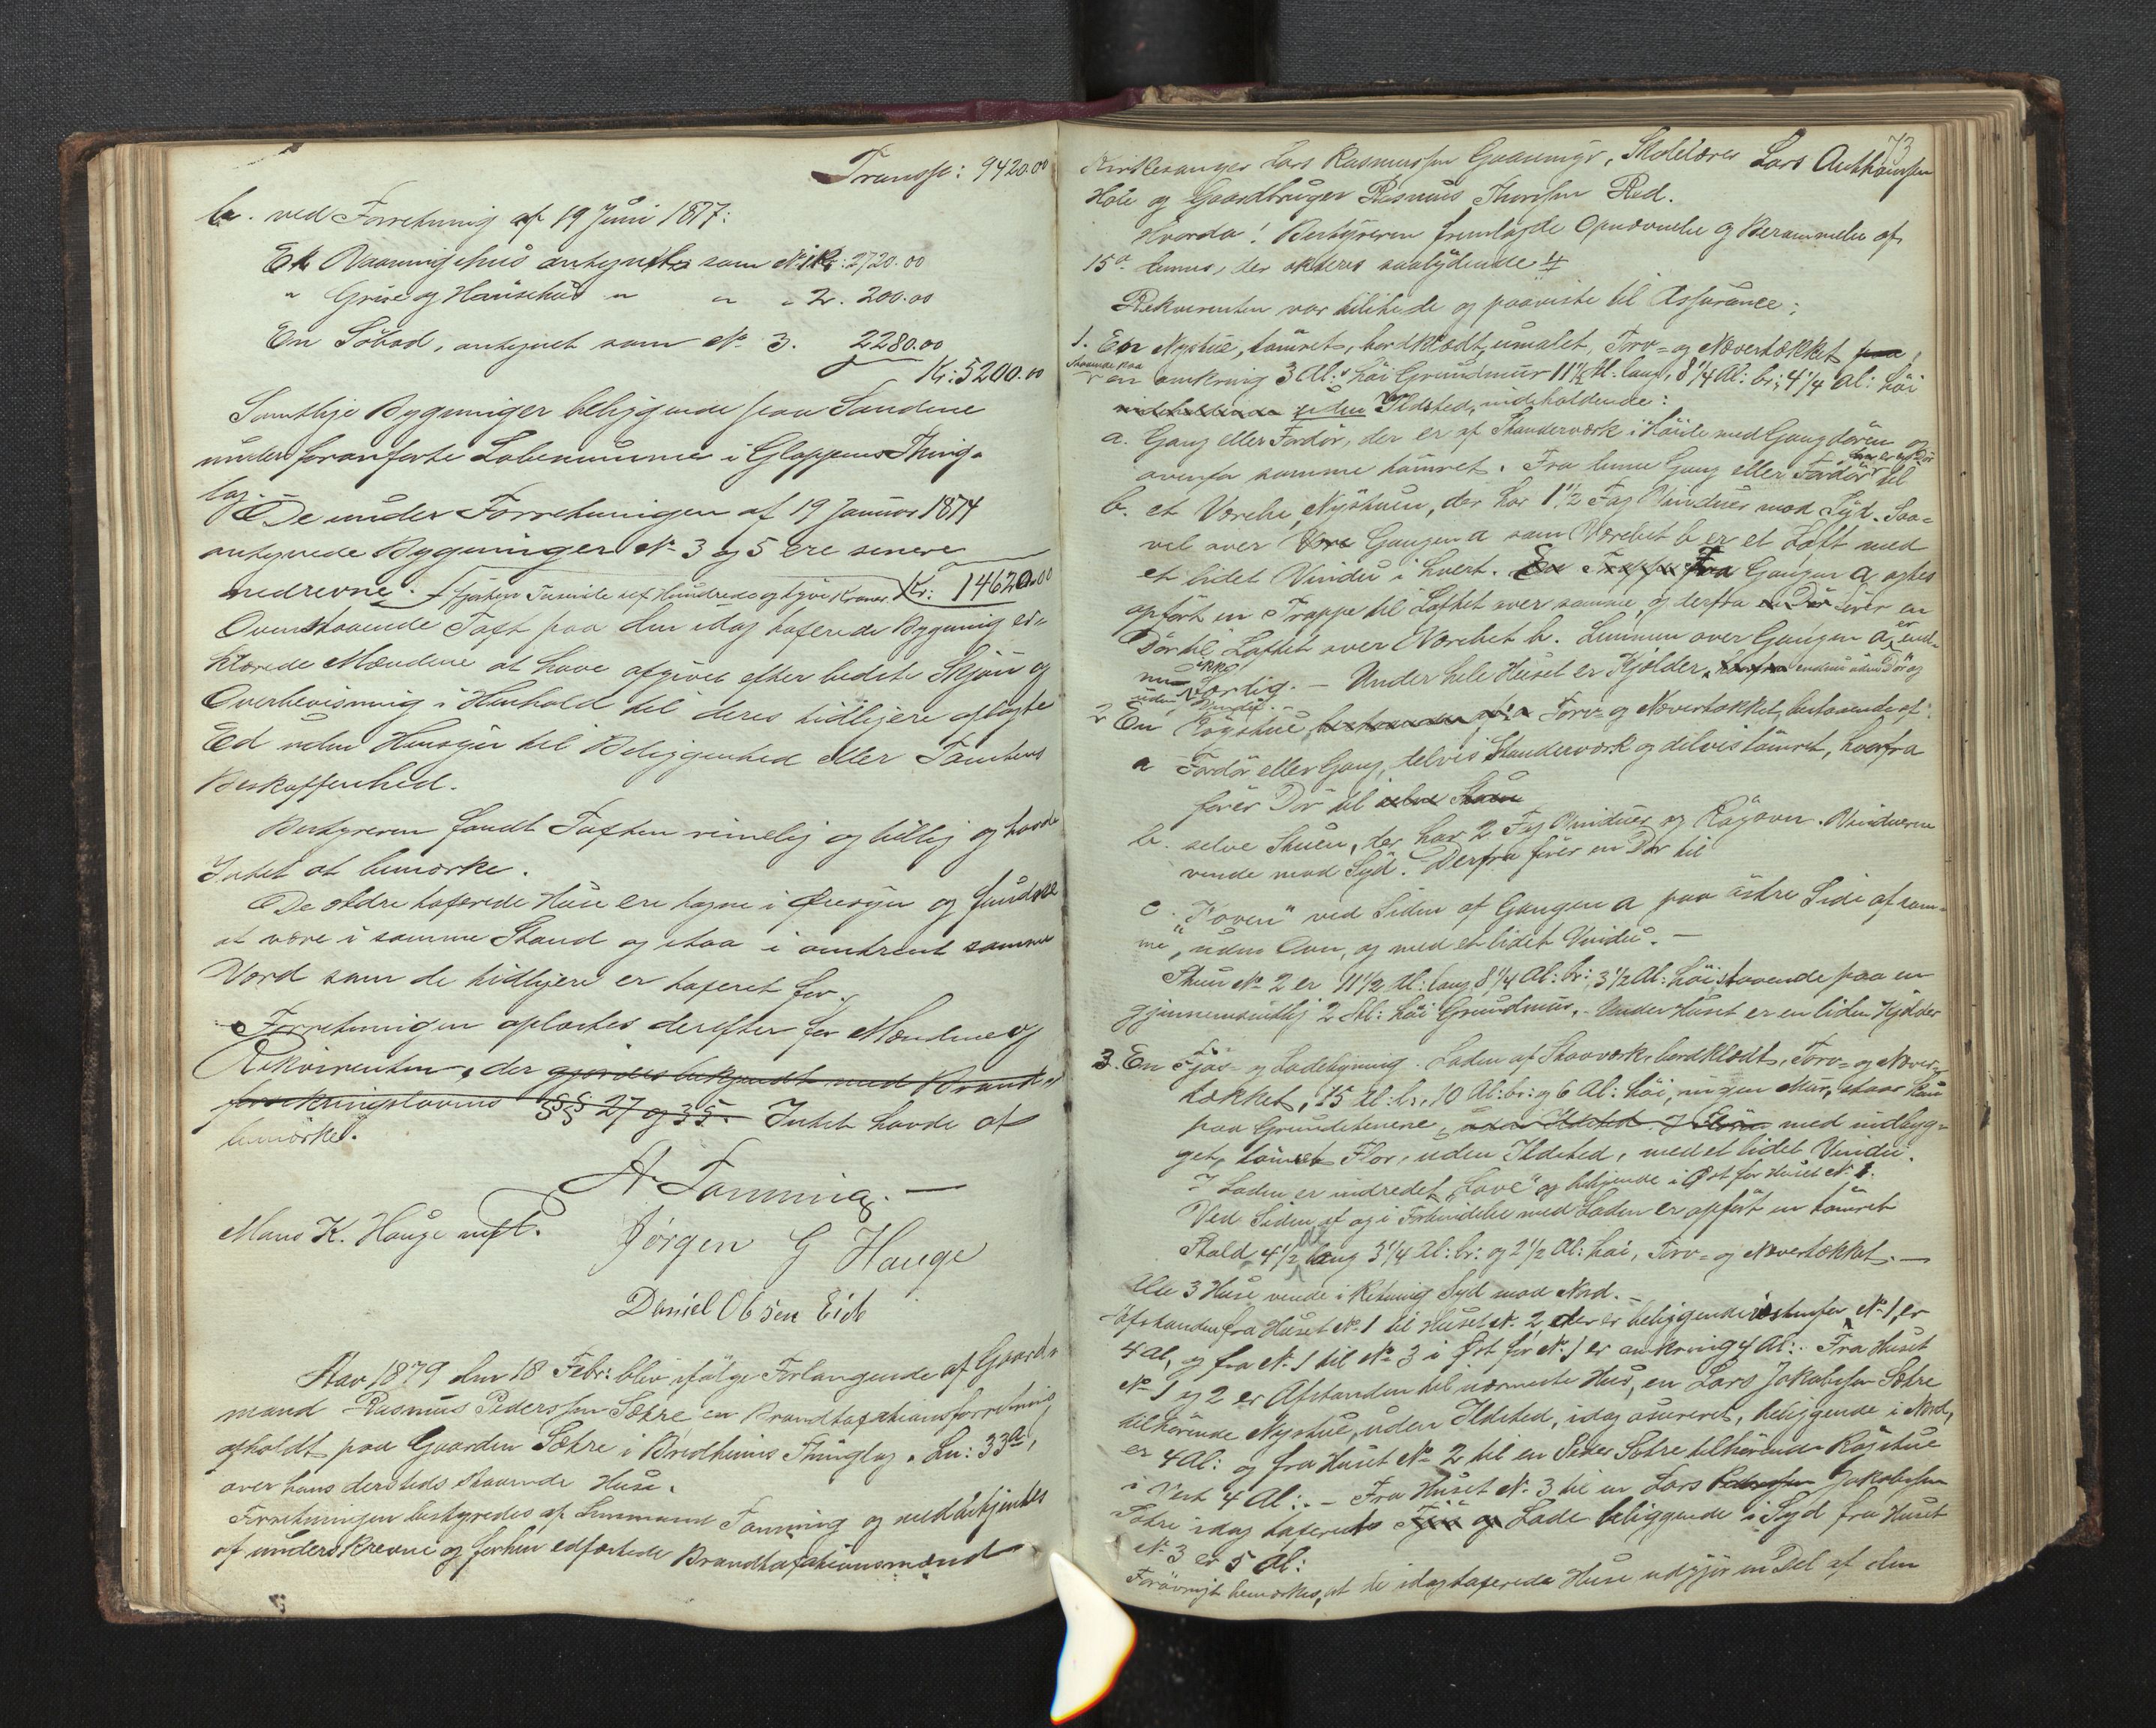 Transp: 9420.00
b. ved Forretning af 19 Juni 1877:
Et Vaaningshus antegnet som No 1 Kr: 2720.00
" Grise og Hønsehus " " " 2. 200.00
En Søbod, antegnet som No 3. 2280.00
Kr: 5200.00
Samtlige Bygninger beliggende paa Sandene
under foranførte Løbenummer i Gloppens Thing-
lag.
De under Forretningen af 19 Januar 1874
antegnede Bygninger No 3 og 5 ere senere
nedrevne. fjorten Tusinde sex Hundrede og tyve Kroner. Kr: 14620.00
Ovenstaaende Taxt paa den idag taxerede Bygning er-
klærede Mændene at have afgivet efter bedste Skjøn og
Overbevisning i Henhold til deres tidligere aflagte
Ed uden Hensyn til Beliggenhed eller Tomtens
Beskaffenhed.
Bestyreren fandt Taxten rimelig og billig og havde
Intet at bemærke.
De ældre taxerede Huse ere tagne i Øiesyn og fundne
at være i samme Stand og staa i omtrent samme
Værd som de tidligere er taxeret for.
Forretningen oplæstes derefter for Mændene og
Rekvirenten, der gjordes bekjendt med Brand-
forsikringslovens §§§ 27 og 35. Intet havde at
bemærke.
A Tønning.
Mons K. Hauge mpt. Jørgen G Hauge
Daniel Olsen Eide
Aar 1879 den 18 Febr: blev ifølge Forlangende af Gaard-
mand Rasmus Pederssen Sætre en Brandtaxationsforretning
afholdt paa Gaarden Sætre i Bredheims Thinglag. Ln: 33a,
over hans dersteds staaende Huse.
Forretningen bestyredes af Lensmand Tønning og meddeltjentes
af underskrevne og forhen edfæstede Brandtaxationsmænd
73
Kirkesanger Lars Rasmussen Gaasemyr, Skolelærer Lars Anthonsen
Hole og Gaardbruger Rasmus Thorsen Red.
Hvorda! Bestyreren fremlagde Opnævnelse og Berammelse af
15de dennes, der akteres saalydende
Rekvirenten var tilstede og paaviste til Assurance:
1. En Nystue, tømret, bordklædt, umalet, Torv- og Nævertækket paa
staaende paa
en omkring 3 Al: høi Grundmur 11½ Al: lang, 8¼ Al: br:, 4¼ Al: høi
indeholdende uden Ildsted, indeholdende:
a. Gang eller Fordør, der er af Standerværk i Høide med Gangdøren og
ovenfor samme tømret. Fra denne Gang eller Fordør er en Dør til
b. et Værelse, Nystuen, der har 1½ Fag Vinduer mod Syd. Saa-
vel over Gangen a som Værelset b er et Loft med
et lidet Vindu i hvert. En Trappe Fra Gangen a agtes
opført en Trappe til Loftet over samme og derfra fører en
Dør til Loftet over Værelset b. Lemmen over Gangen a er end-
nu ikke færdig. – Under hele Huset er Kjelder, endnu uden Dør og
uden Vindu.
2 En Røgstue, bestaaende af: a Torv- og Nævertækket, bestaaende af:
a Fordør eller Gang, delvis Standerværk og delvis tømret, hvorfra
fører Dør til selve Stuen
b. selve Stuen, der har 2 Fag Vinduer og Røgovn. Vinduerne
vende mod Syd. Derfra fører en Dør til
c. "Koven" ved Siden af Gangen a paa østre Side af sam-
me, uden Ovn, og med et lidet Vindu. –
Stuen No 2 er 11½ Al: lang 8¼ Al: br: 3½ Al: høi staaende paa en
gjennemsnitlig 2 Al: høi Grundmur. – Under Huset er en liden Kjelder
3. En Fjøs- og Ladebygning. Laden af Stavværk, bordklædt, Torv- og Næver-
tækket, 15 Al: l:, 10 Al: br: og 6 Al: høi, ingen Mur, staar kun
paa Grundstenene, uden Ildsted. med indbyg-
get, tømret Flor, uden Ildsted, med et lidet Vindu.
I Laden er indredet "Lave" og beliggende i Øst for Huset No 1.
Ved Siden af og i Forbindelse med Laden er opført en tømret
Stald 4½ Al lang 3¼ Al: br: og 2½ Al: høi, Torv- og Nævertækket. –
Alle 3 Huse vende i Retning Syd mod Nord. –
Afstanden fra Huset No 1 til Huset No 2, der er beliggende vestenfor No 1, er
4 Al, og fra No 1 til No 3 i Øst for No 1 er omkring 4 Al:. Fra Huset
No 1 og 2 er Afstanden til nærmeste Hus, en Lars Jakobsen Sætre
tilhørende Nystue, uden Ildsted, idag assureret, beliggende i Nord,
er 4 Al: og fra Huset No 2 til en Peder Sætre tilhørende Røgstue
i Vest 4 Al:. – Fra Huset No 3 til en Lars Pederssen Jakobsen
Sætre idag taxerede Fjøs og Lade beliggende i Syd fra Huset
No 3 er 5 Al:
Forøvrigt bemærkes, at de idag taxerede Huse udgjør en Del af den